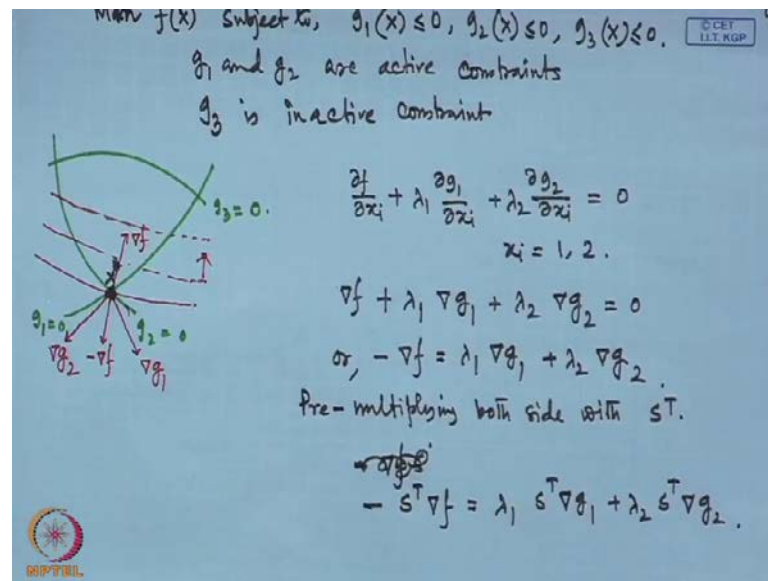 f(x) Subject to, g₁(x) ≤ 0, g₂(x) ≤ 0, g₃(x) ≤ 0.
© CET
I.I.T. KGP
g₁ and g₂ are active constraints
g₃ is inactive constraint
g₃ = 0.
∇f
g₁ = 0
g₂ = 0
∇g₂ -∇f ∇g₁
∂f/∂xᵢ + λ₁ ∂g₁/∂xᵢ + λ₂ ∂g₂/∂xᵢ = 0
xᵢ = 1, 2.
∇f + λ₁ ∇g₁ + λ₂ ∇g₂ = 0
or, - ∇f = λ₁ ∇g₁ + λ₂ ∇g₂.
Pre-multiplying both side with Sᵀ.
- Sᵀ∇f = λ₁ Sᵀ∇g₁ + λ₂ Sᵀ∇g₂.
NPTEL